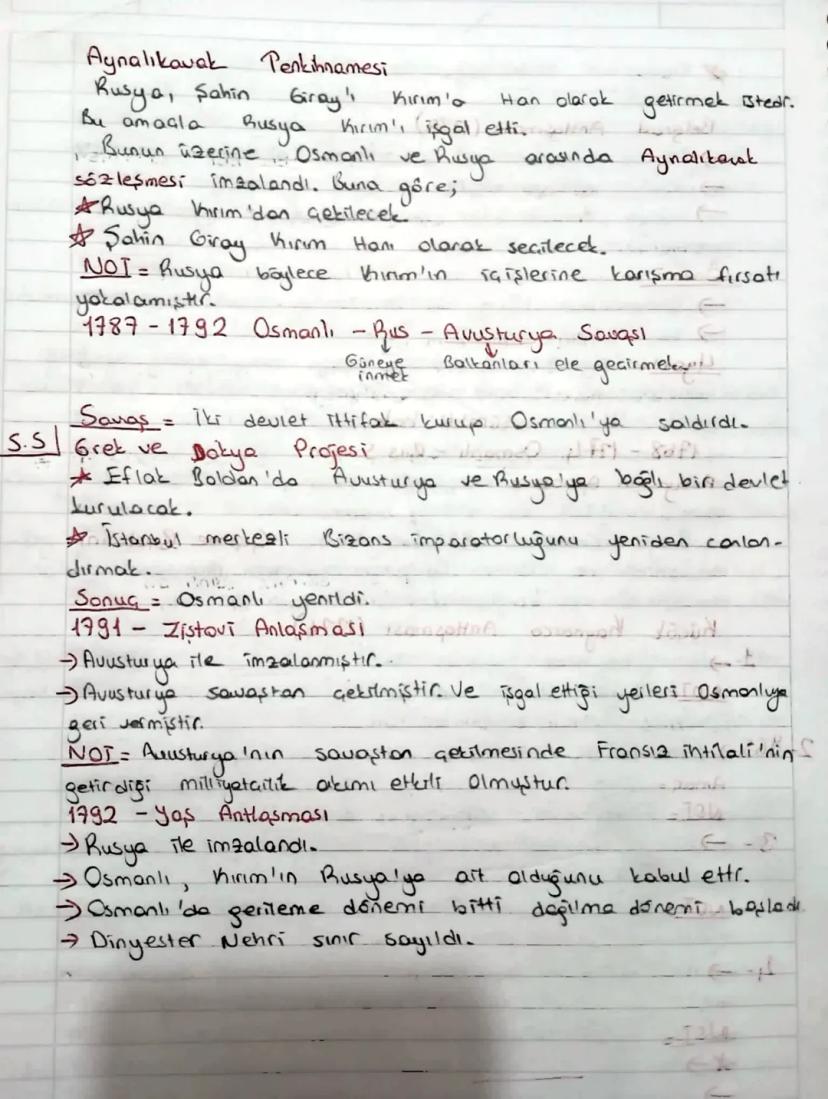 Aynalıkavak Tenkihnamesi
Rusya, Şahin Giray'ı Kırım'a Han olarak getirmek istedi.
Bu amaçla Rusya Kırım'ı işgal etti.
Bunun üzerine Osmanlı ve Rusya arasında Aynalıkavak
sözleşmesi imzalandı. Buna göre;
★ Rusya Kırım'dan çekilecek
★ Şahin Giray Kırım Hanı olarak seçilecek.
NOT = Rusya böylece Kırım'ın içişlerine karışma fırsatı
yakalamıştır.
1787 - 1792 Osmanlı - Rus - Avusturya Savaşı
↓ ↓
Güneye inmek Balkanları ele geçirmek
Savaş = İki devlet ittifak kurup Osmanlı'ya saldırdı.
S.S Grek ve Dakya Projesi
★ Eflak Boğdan'da Avusturya ve Rusya'ya bağlı bir devlet
kurulacak.
★ İstanbul merkezli Bizans imparatorluğunu yeniden canlan-
dırmak.
Sonuç = Osmanlı yenildi.
1791 - Ziştovi Anlaşması
→ Avusturya ile imzalanmıştır.
→ Avusturya savaştan çekilmiştir. Ve işgal ettiği yerleri Osmanlıya
geri vermiştir.
NOT = Avusturya'nın savaştan çekilmesinde Fransız ihtilali'nin
getirdiği milliyetçilik akımı etkili olmuştur.
1792 - Yaş Antlaşması
→ Rusya ile imzalandı.
→ Osmanlı, Kırım'ın Rusya'ya ait olduğunu kabul etti.
→ Osmanlı'da gerileme dönemi bitti dağılma dönemi başladı
→ Dinyester Nehri sınır sayıldı.